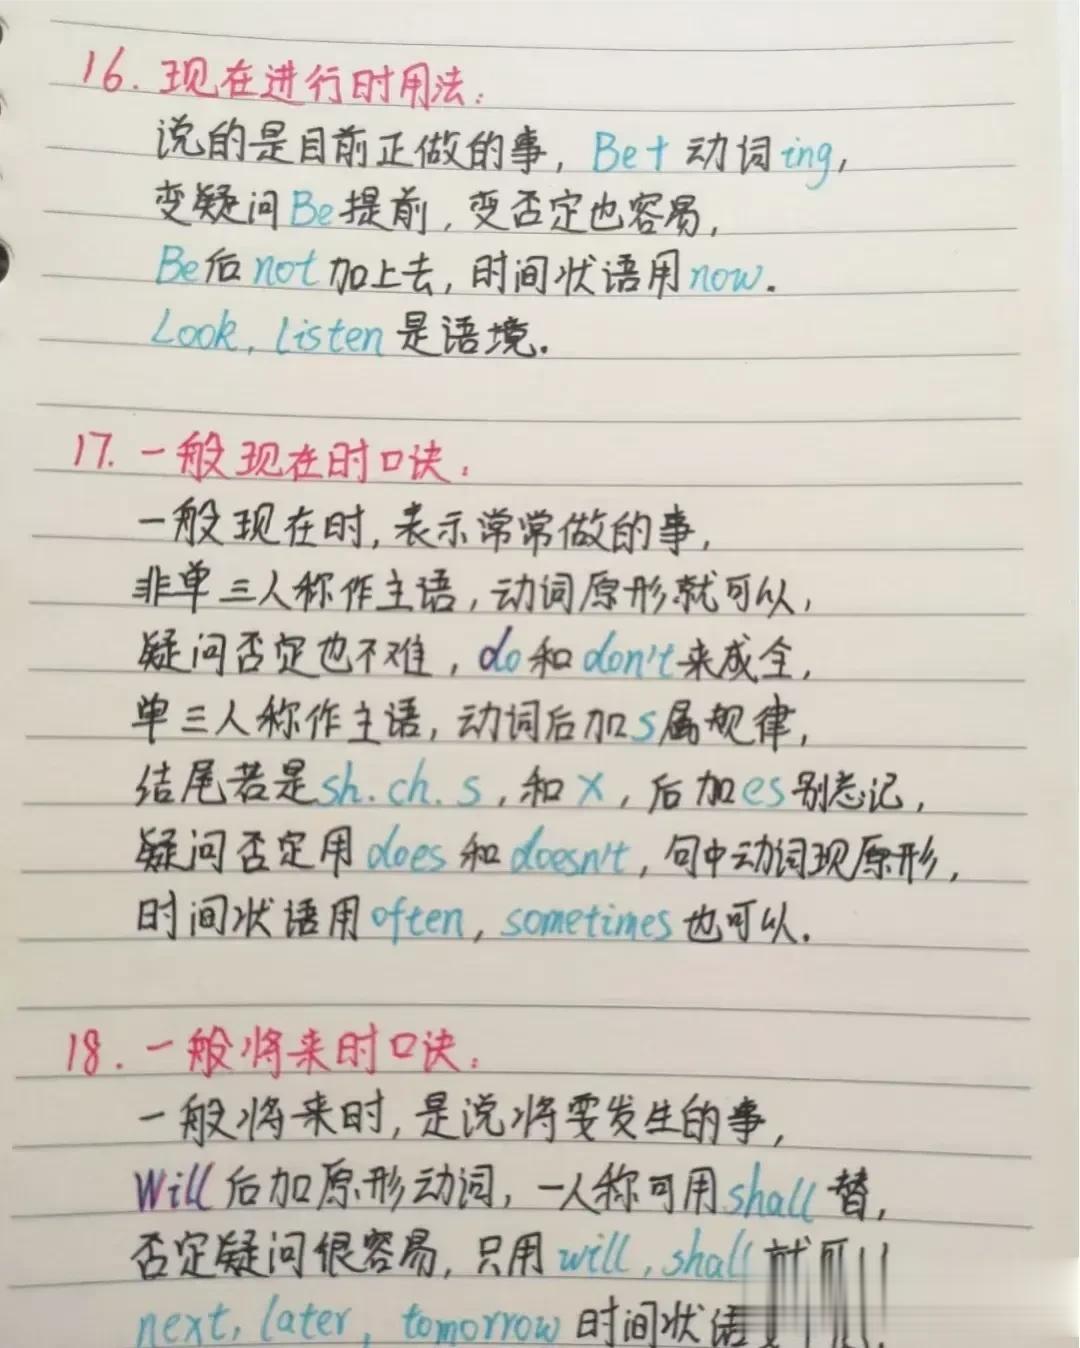 16. 现在进行时用法:
说的是目前正做的事, Be+动词ing,
变疑问Be提前, 变否定也容易,
Be后not加上去, 时间状语用now.
Look, Listen是语境.
17. 一般现在时口诀:
一般现在时, 表示常常做的事,
非单三人称作主语, 动词原形就可以,
疑问否定也不难, do和don't来成全,
单三人称作主语, 动词后加s属规律,
结尾若是sh. ch. s, 和x, 后加es别忘记,
疑问否定用does和doesn't, 句中动词现原形,
时间状语用often, sometimes也可以.
18. 一般将来时口诀:
一般将来时, 是说将要发生的事,
Will后加原形动词, 一人称可用shall替,
否定疑问很容易, 只用will, shall就可以
next, later, tomorrow时间状语